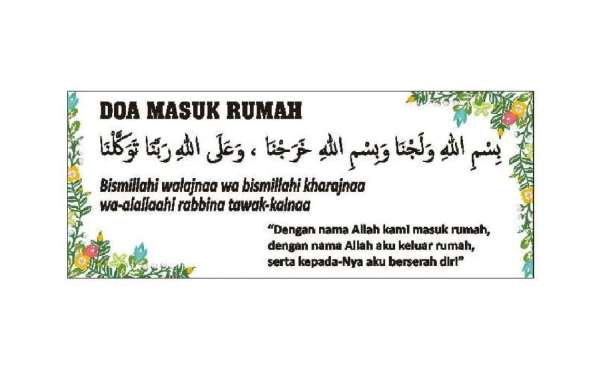 DOA MASUK RUMAH
بِسْمِ اللهِ وَلَجْنَا وَبِسْمِ اللهِ خَرَجْنَا ، وَعَلَى اللهِ رَبِّنَا تَوَكَّلْنَا
Bismillahi walajnaa wa bismillahi kharajnaa
wa-alallaahi rabbina tawak-kalnaa
“Dengan nama Allah kami masuk rumah,
dengan nama Allah aku keluar rumah,
serta kepada-Nya aku berserah diri”